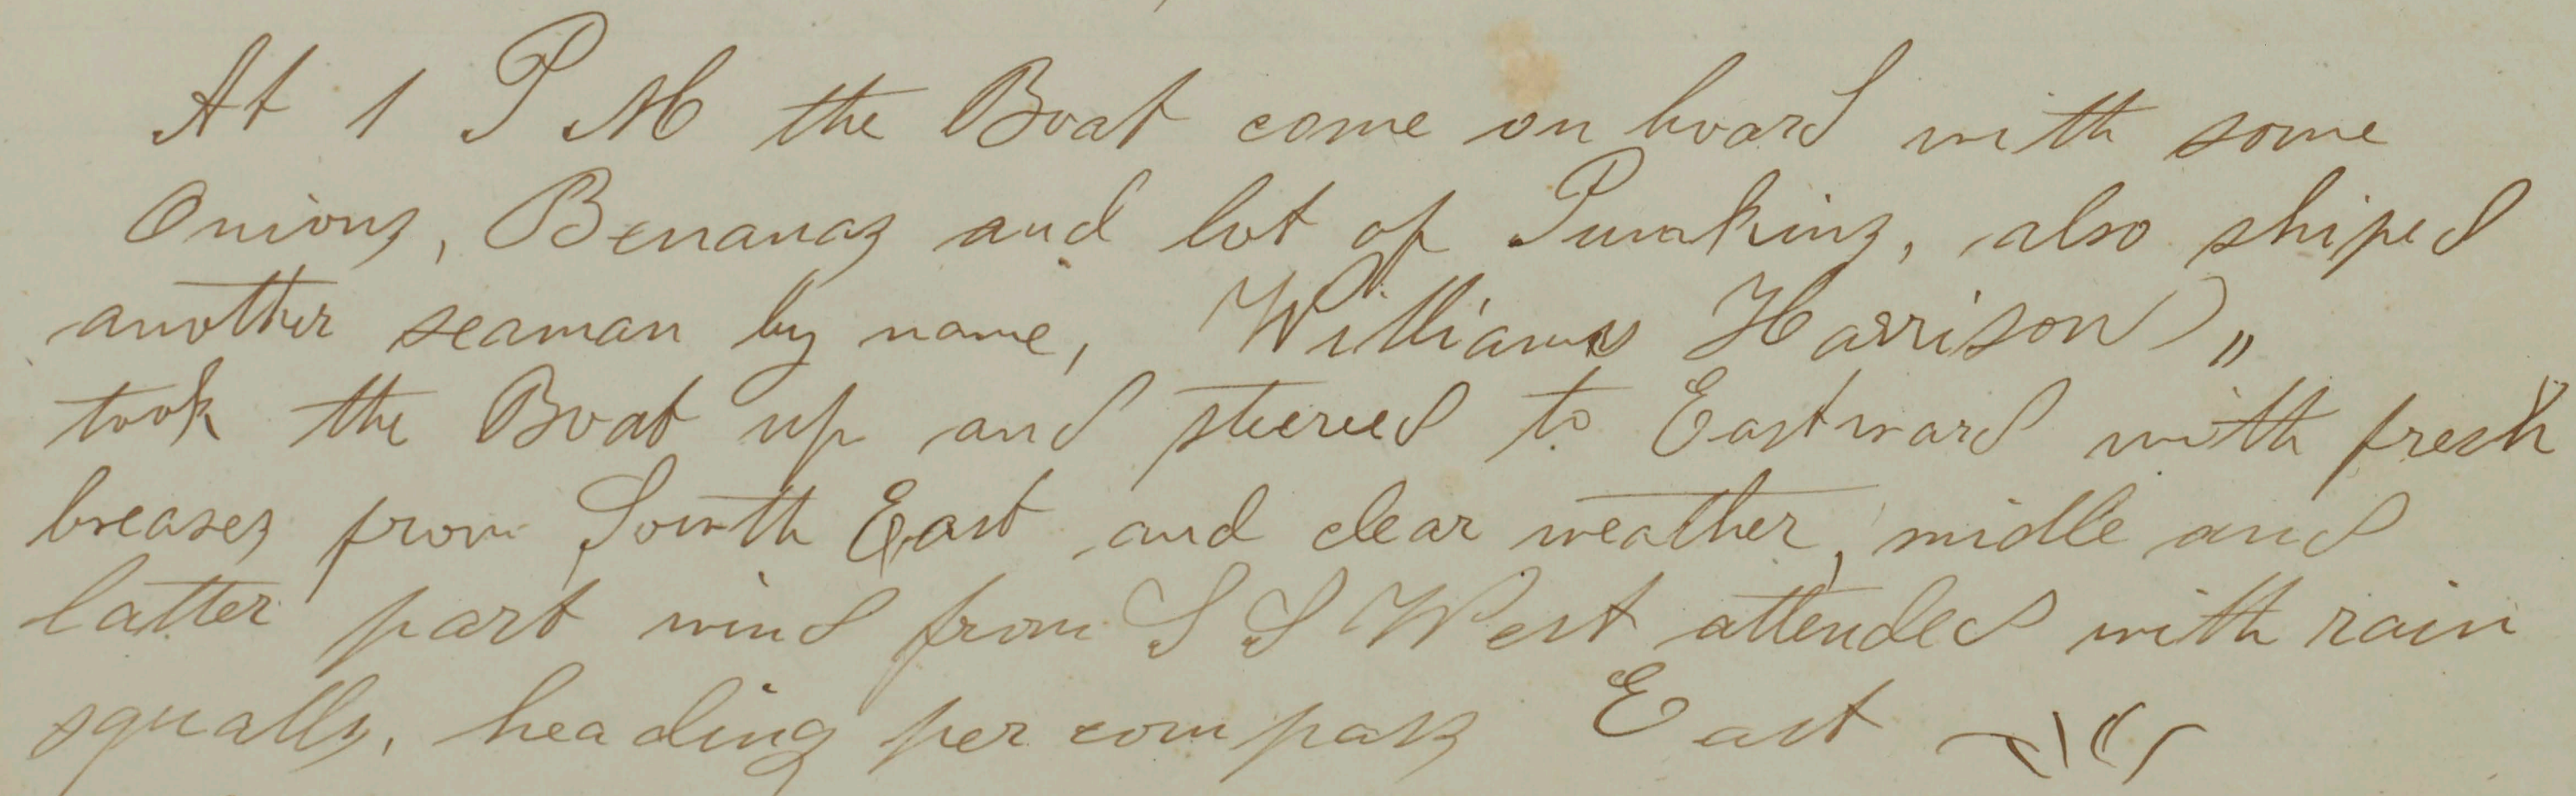 At 1 P M the Boat come on board with some
Onions, Benanas and lot of Pumkins, also shiped
another seaman by name, Williams Harrison "
took the Boat up and steered to Eastward with fresh
breases from South East and clear weather, midle and
latter part wind from S S West attended with rain
squally, heading per compass East